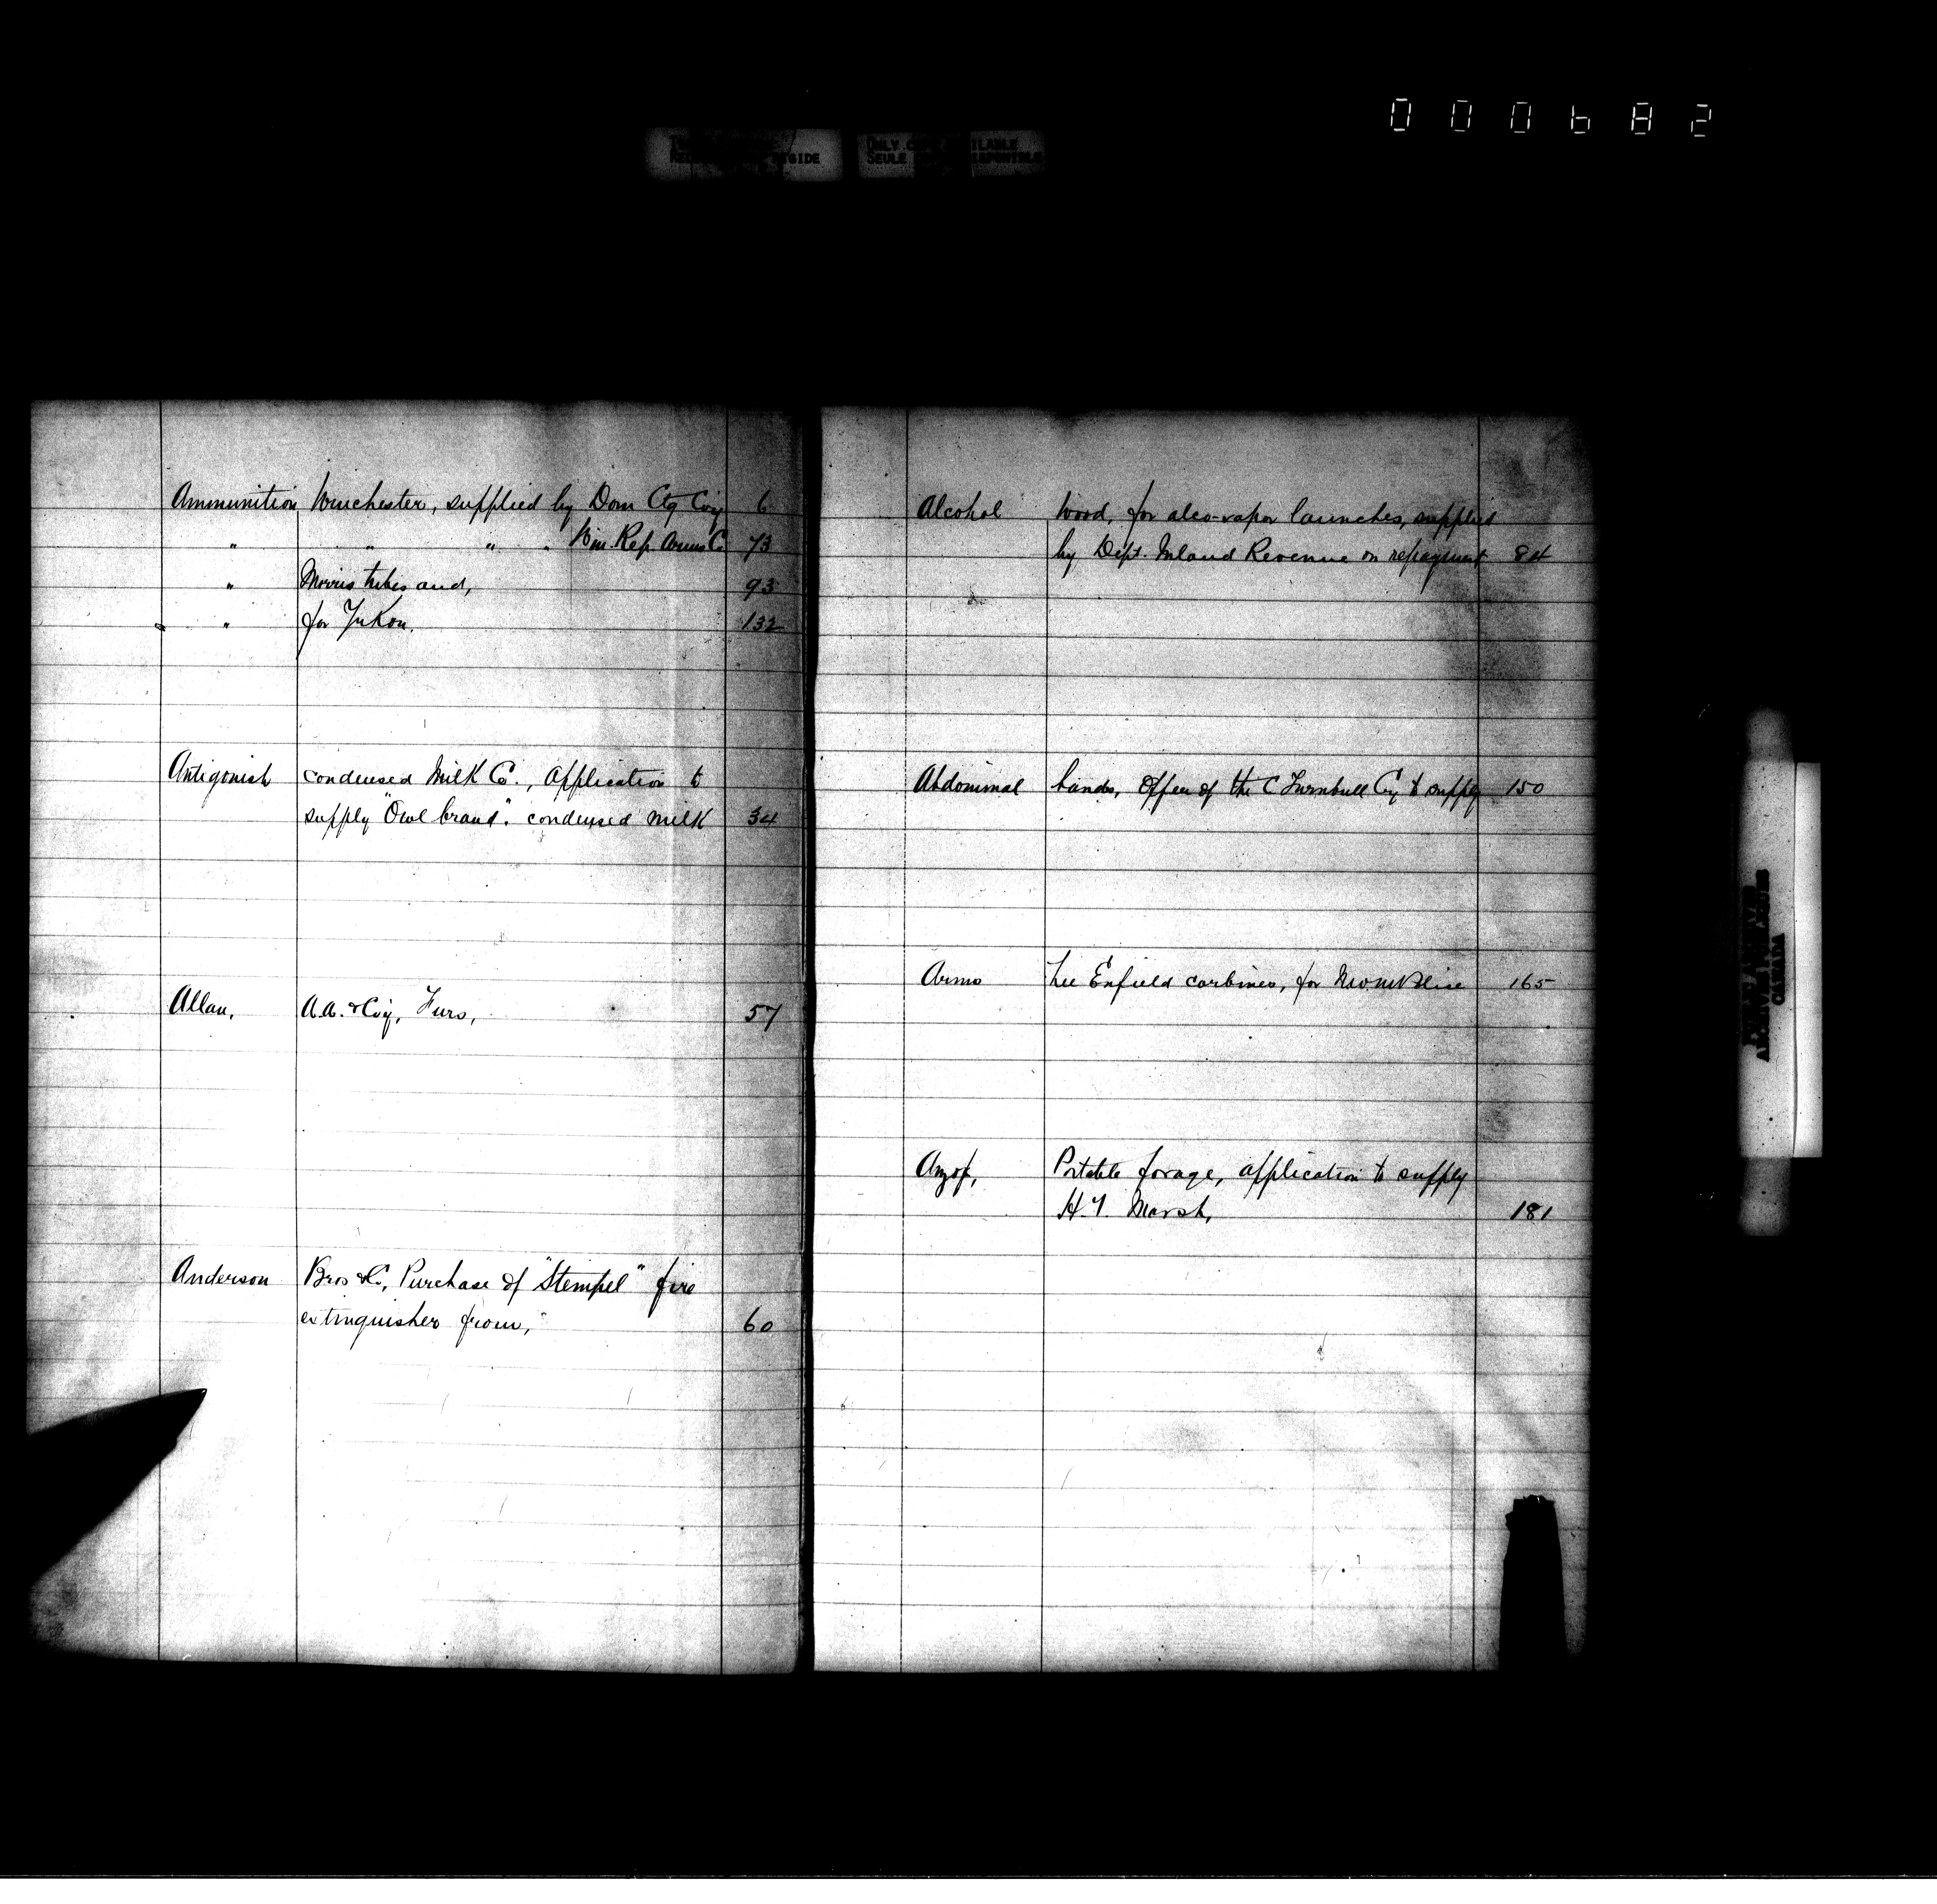 000682
ONLY COPY AVAILABLE
SEULE COPIE DISPONIBLE
Ammunition Winchester, supplied by Dom Ctg Coy 6
" " " " Win. Rep. Arms C. 73
" Morris tubes and, 93
" for Yukon. 132
Antigonish condensed Milk Co., Application to
supply "Owl brand". condensed milk 34
Allan, A.A. & Coy, Furs, 57
Anderson Bros & Co, Purchase of "Stempel" fire
extinguisher from, 60
Alcohol Wood, for alco-vapor launches, supplied
by Dept. Inland Revenue on repayment 84
Abdominal bands, Offer of the C Turnbull Cy to supply 150
Arms Lee Enfield carbines, for 165
Portable forage, application to supply
H.Y. Marsh, 181
PUBLIC ARCHIVES
ARCHIVES PUBLIQUES
CANADA